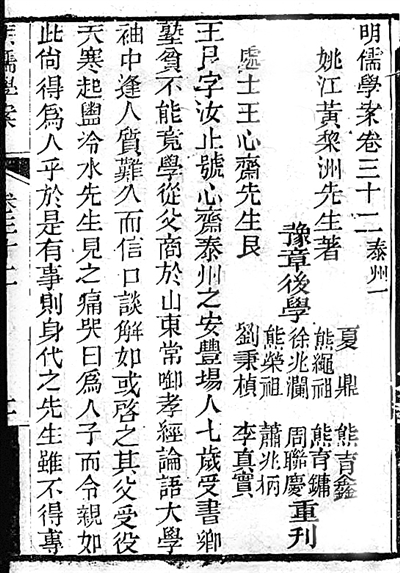 明儒學案卷三十二 泰州一
姚江黃黎洲先生著
夏鼎 熊育鑫
熊繩祖 熊育鏞
豫章後學 徐兆瀾 周聯慶 重刊
熊榮祖 蕭兆柄
劉秉楨 李真實
處士王心齋先生艮
王艮字汝止號心齋泰州之安豐場人七歲受書鄉
塾貧不能竟學從父商於山東常啣孝經論語大學
袖中逢人質難久而信口談解如或啓之其父受役
天寒起盥冷水先生見之痛哭曰爲人子而令親如
此尙得爲人乎於是有事則身代之先生雖不得專
明儒學案
卷三十二